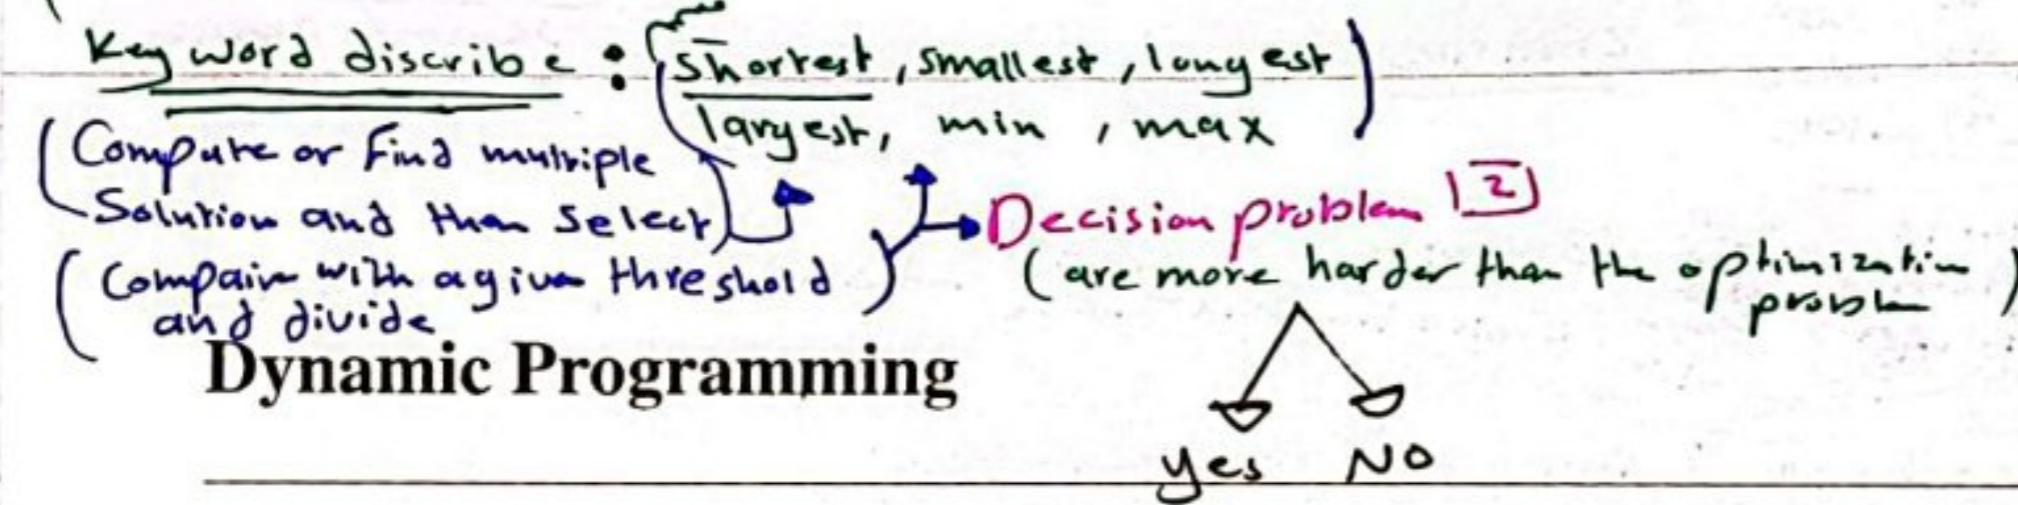 Key word discribe : (shortest, smallest, longest
largest, min, max)
(Compute or Find multiple
Solution and then select)
Decision problem 2
(Compair with a given threshold
and divide)
(are more harder than the optimization
problem)
Dynamic Programming
yes NO